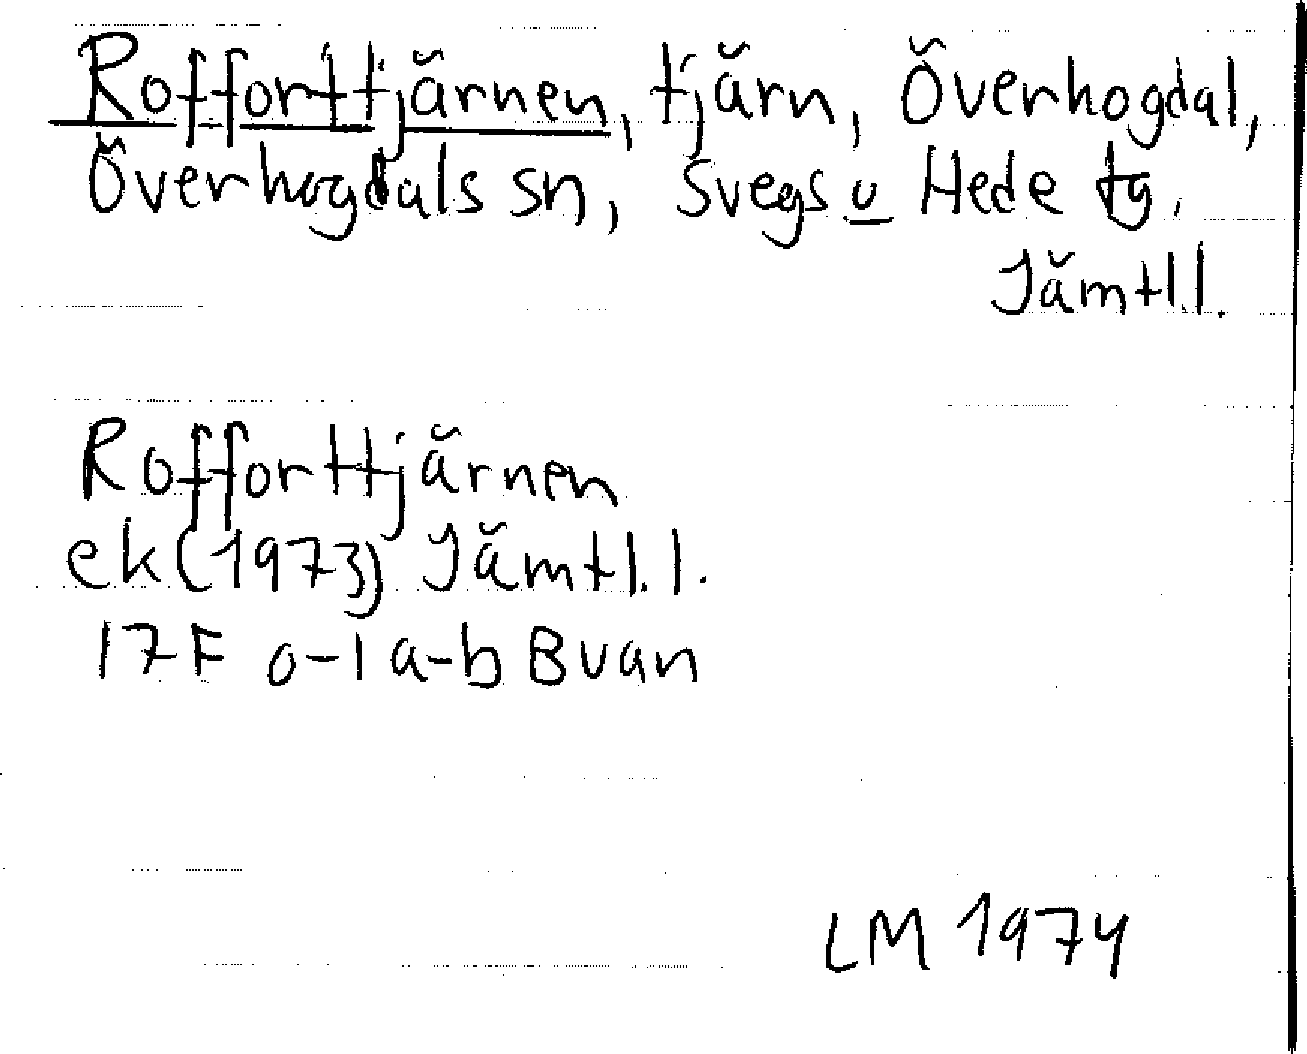 Rofforttjärnen, tjärn, Överhogdal,
Överhogdals sn, Svegs o Hede tg,
Jämtl.l.
Rofforttjärnen
ek (1973) Jämtl.l.
17F 0-1 a-b Bvan
LM 1974